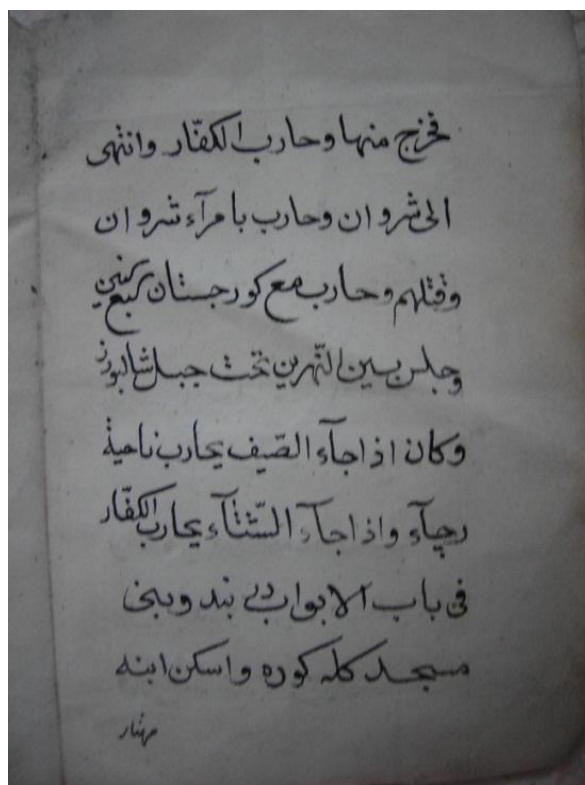 فخرج منها وحارب الكفّار وانتهى
الى شروان وحارب بامرآء شروان
وقتلهم وحارب مع كورجستان
وجلس بين النّهرين تحت جبل شالبوز
وكان اذا جآء الصّيف يحارب ناحية
رچآء واذا جآء الشّتآء يحارب الكفّار
فى باب الابواب دلى بند وبنى
مسجد كله كوره واسكن ابنه